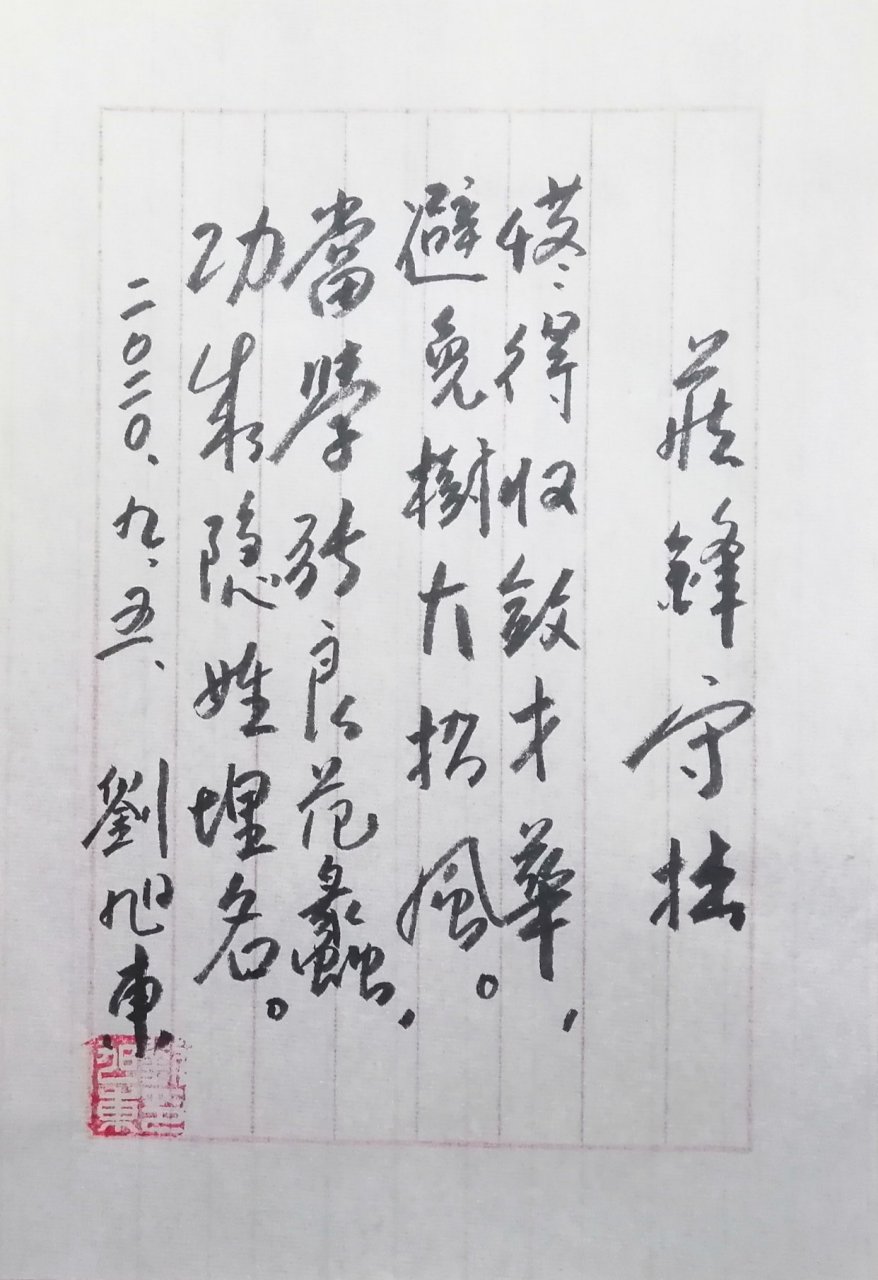 藏鋒守拙
懂得收斂才華，
避免樹大招風。
當學張良范蠡，
功成隐姓埋名。
二〇二〇、九、五、劉旭東